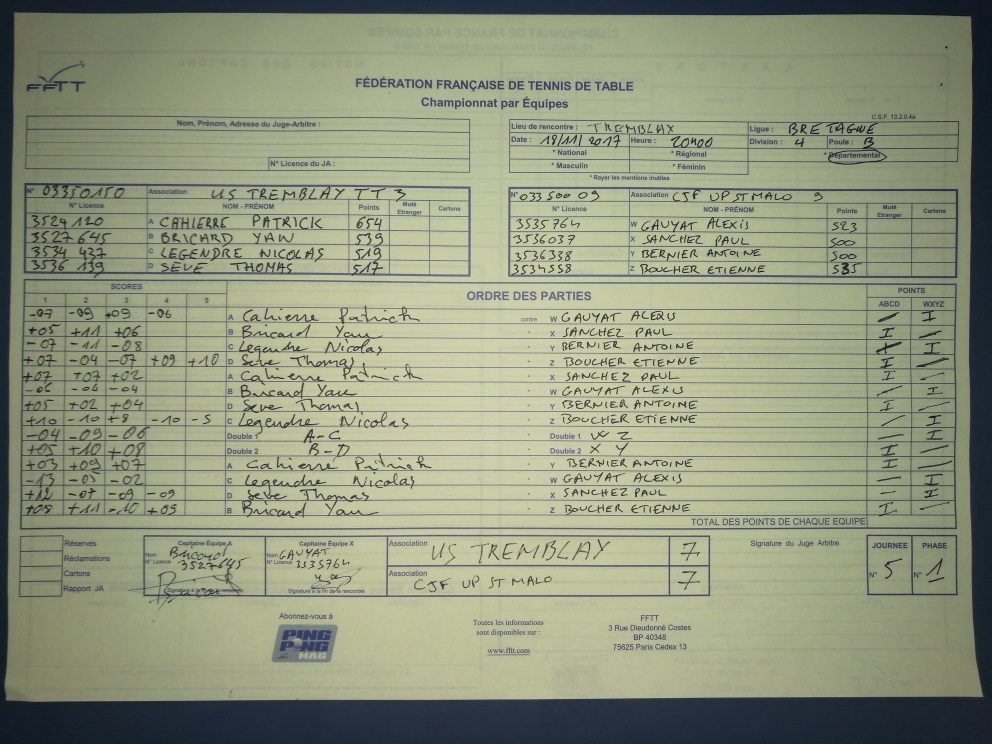 FFTT
FÉDÉRATION FRANÇAISE DE TENNIS DE TABLE
Championnat par Équipes
C.S.F. 13.2.0.4a
Nom, Prénom, Adresse du Juge-Arbitre :
N° Licence du JA :
Lieu de rencontre : TREMBLAY Ligue : BRETAGNE
Date : 18/11/2017 Heure : 20H00 Division : 4 Poule : B
* National * Régional * Départemental
* Masculin * Féminin
* Rayer les mentions inutiles
N° 03350150 Association US TREMBLAY TT 3
N° Licence NOM - PRÉNOM Points Muté Etranger Cartons
3524120 A CAHIERRE PATRICK 654
3527645 B BRICARD YAN 539
3534437 C LEGENDRE NICOLAS 519
3536139 D SEVE THOMAS 517
N° 03350009 Association CJF UP ST MALO 9
N° Licence NOM - PRÉNOM Points Muté Etranger Cartons
3535764 W GAUYAT ALEXIS 523
3536037 X SANCHEZ PAUL 500
3536338 Y BERNIER ANTOINE 500
3534558 Z BOUCHER ETIENNE 535
SCORES ORDRE DES PARTIES POINTS
1 2 3 4 5 ABCD WXYZ
-07 -09 +09 -06 A Cahierre Patrick contre W GAUYAT ALEXIS — I
+05 +11 +06 B Bricard Yan - X SANCHEZ PAUL I —
-07 -11 -08 C Legendre Nicolas - Y BERNIER ANTOINE I
+07 -04 -07 +09 +10 D Seve Thomas - Z BOUCHER ETIENNE I —
+07 +07 +02 A Cahierre Patrick - X SANCHEZ PAUL I —
-06 -04 -04 B Bricard Yan - W GAUYAT ALEXIS — I
+05 +02 +04 D Seve Thomas - Y BERNIER ANTOINE I —
+10 -10 +8 -10 -5 C Legendre Nicolas - Z BOUCHER ETIENNE — I
-04 -09 -06 Double 1 A-C - Double 1 W Z — I
+05 +10 +08 Double 2 B-D - Double 2 X Y I —
+03 +09 +07 A Cahierre Patrick - Y BERNIER ANTOINE I —
-13 -05 -02 C Legendre Nicolas - W GAUYAT ALEXIS — I
+12 -07 -09 -09 D Seve Thomas - X SANCHEZ PAUL — I
+08 +11 -10 +09 B Bricard Yan - Z BOUCHER ETIENNE I —
TOTAL DES POINTS DE CHAQUE EQUIPE
Réserves
Réclamations
Cartons
Rapport JA
Capitaine Équipe A
Nom Bricard
N° Licence 3527645
Signature à la fin de la rencontre
Capitaine Équipe X
Nom GAUYAT
N° Licence 3535764
Signature à la fin de la rencontre
Association US TREMBLAY 7
Association CJF UP ST MALO 7
Signature du Juge Arbitre
JOURNEE PHASE
N° 5 N° 1
Abonnez-vous à
PING PONG MAG
Toutes les informations
sont disponibles sur :
www.fftt.com
FFTT
3 Rue Dieudonné Costes
BP 40348
75625 Paris Cedex 13